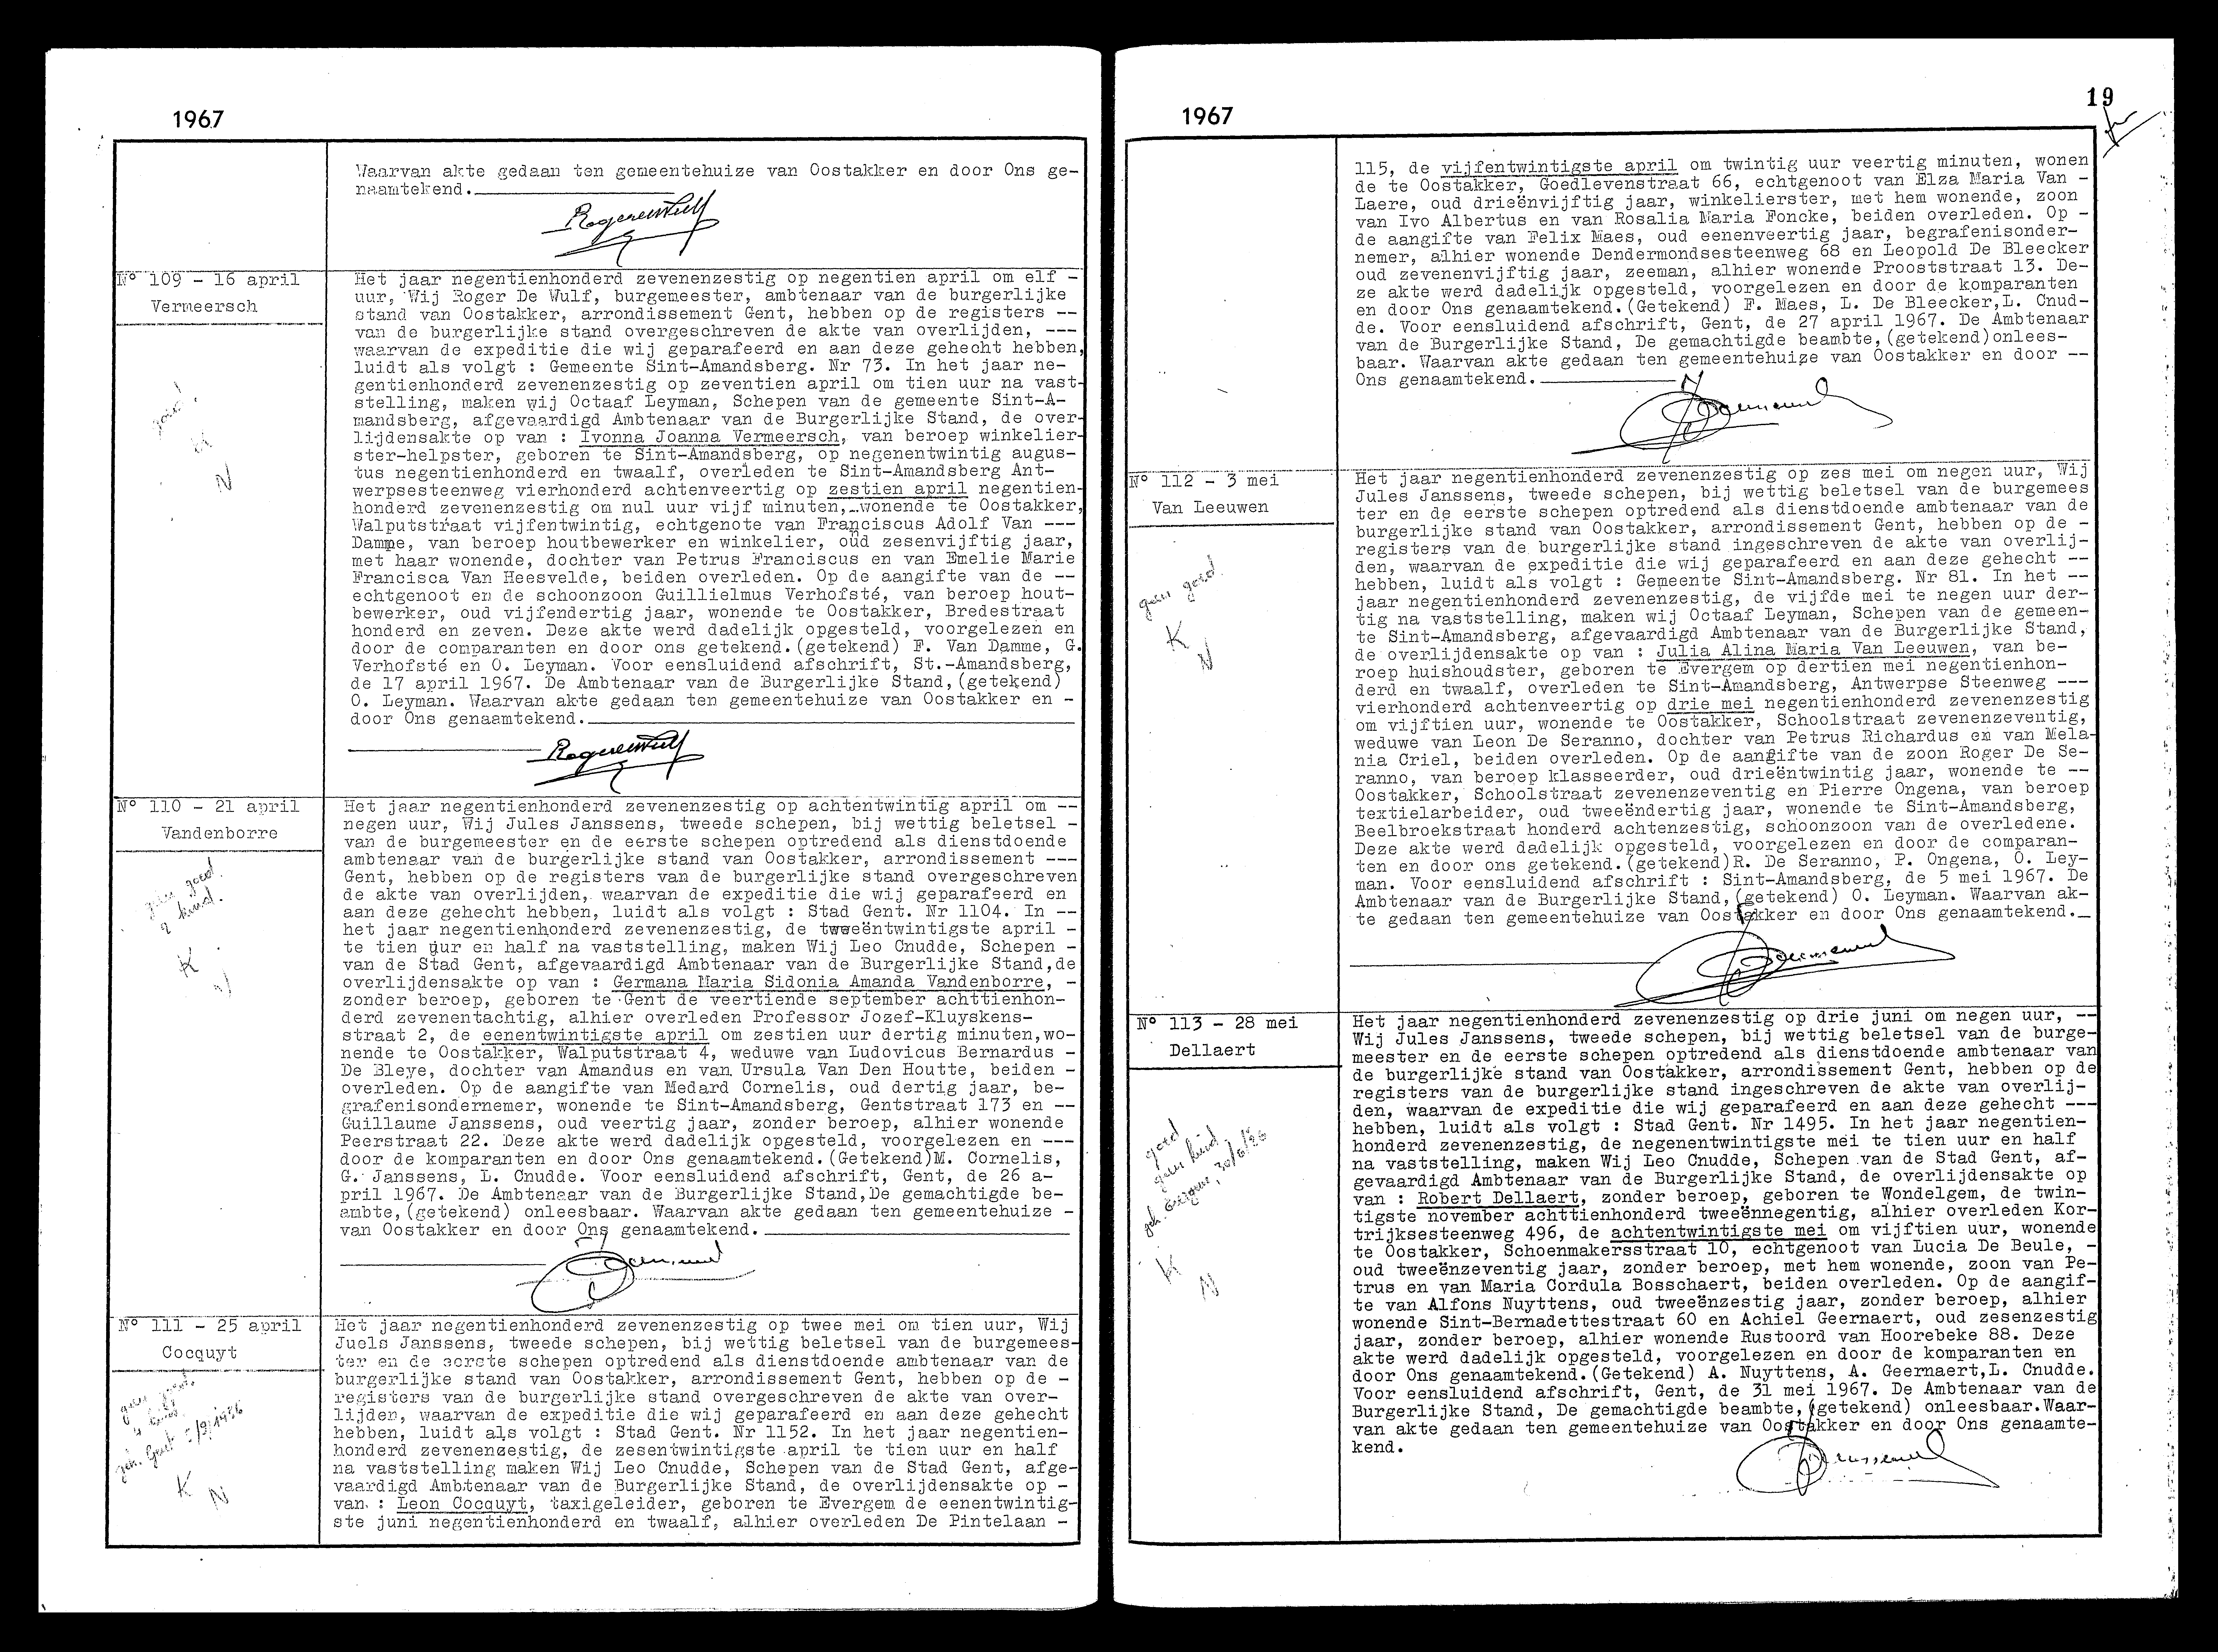 1967
Waarvan akte gedaan ten gemeentehuize van Oostakker en door Ons ge-
naamtekend.
N° 109 - 16 april
Vermeersch
Het jaar negentienhonderd zevenenzestig op negentien april om elf -
uur, Wij Roger De Wulf, burgemeester, ambtenaar van de burgerlijke
stand van Oostakker, arrondissement Gent, hebben op de registers --
van de burgerlijke stand overgeschreven de akte van overlijden, ---
waarvan de expeditie die wij geparafeerd en aan deze gehecht hebben,
luidt als volgt : Gemeente Sint-Amandsberg. Nr 73. In het jaar ne-
gentienhonderd zevenenzestig op zeventien april om tien uur na vast-
stelling, maken wij Octaaf Leyman, Schepen van de gemeente Sint-A-
mandsberg, afgevaardigd Ambtenaar van de Burgerlijke Stand, de over-
lijdensakte op van : Ivonna Joanna Vermeersch, van beroep winkelier-
ster-helpster, geboren te Sint-Amandsberg, op negenentwintig augus-
tus negentienhonderd en twaalf, overleden te Sint-Amandsberg Ant-
werpsesteenweg vierhonderd achtenveertig op zestien april negentien-
honderd zevenenzestig om nul uur vijf minuten, wonende te Oostakker,
Walputstraat vijfentwintig, echtgenote van Franciscus Adolf Van ---
Damme, van beroep houtbewerker en winkelier, oud zesenvijftig jaar,
met haar wonende, dochter van Petrus Franciscus en van Emelie Marie
Francisca Van Heesvelde, beiden overleden. Op de aangifte van de --
echtgenoot en de schoonzoon Guillielmus Verhofsté, van beroep hout-
bewerker, oud vijfendertig jaar, wonende te Oostakker, Bredestraat
honderd en zeven. Deze akte werd dadelijk opgesteld, voorgelezen en
door de comparanten en door ons getekend.(getekend) F. Van Damme, G.
Verhofsté en O. Leyman. Voor eensluidend afschrift, St.-Amandsberg,
de 17 april 1967. De Ambtenaar van de Burgerlijke Stand,(getekend)
O. Leyman. Waarvan akte gedaan ten gemeentehuize van Oostakker en -
door Ons genaamtekend.
N° 110 - 21 april
Vandenborre
K
Het jaar negentienhonderd zevenenzestig op achtentwintig april om --
negen uur, Wij Jules Janssens, tweede schepen, bij wettig beletsel -
van de burgemeester en de eerste schepen optredend als dienstdoende
ambtenaar van de burgerlijke stand van Oostakker, arrondissement ---
Gent, hebben op de registers van de burgerlijke stand overgeschreven
de akte van overlijden, waarvan de expeditie die wij geparafeerd en
aan deze gehecht hebben, luidt als volgt : Stad Gent. Nr 1104. In --
het jaar negentienhonderd zevenenzestig, de tweeëntwintigste april -
te tien uur en half na vaststelling, maken Wij Leo Cnudde, Schepen -
van de Stad Gent, afgevaardigd Ambtenaar van de Burgerlijke Stand,de
overlijdensakte op van : Germana Maria Sidonia Amanda Vandenborre, -
zonder beroep, geboren te Gent de veertiende september achttienhon-
derd zevenentachtig, alhier overleden Professor Jozef-Kluyskens-
straat 2, de eenentwintigste april om zestien uur dertig minuten,wo-
nende te Oostakker, Walputstraat 4, weduwe van Ludovicus Bernardus -
De Bleye, dochter van Amandus en van Ursula Van Den Houtte, beiden -
overleden. Op de aangifte van Medard Cornelis, oud dertig jaar, be-
grafenisondernemer, wonende te Sint-Amandsberg, Gentstraat 173 en --
Guillaume Janssens, oud veertig jaar, zonder beroep, alhier wonende
Peerstraat 22. Deze akte werd dadelijk opgesteld, voorgelezen en ---
door de komparanten en door Ons genaamtekend.(Getekend)M. Cornelis,
G. Janssens, L. Cnudde. Voor eensluidend afschrift, Gent, de 26 a-
pril 1967. De Ambtenaar van de Burgerlijke Stand,De gemachtigde be-
ambte,(getekend) onleesbaar. Waarvan akte gedaan ten gemeentehuize -
van Oostakker en door Ons genaamtekend.
N° 111 - 25 april
Cocquyt
K
N
Het jaar negentienhonderd zevenenzestig op twee mei om tien uur, Wij
Juels Janssens, tweede schepen, bij wettig beletsel van de burgemees-
ter en de eerste schepen optredend als dienstdoende ambtenaar van de
burgerlijke stand van Oostakker, arrondissement Gent, hebben op de -
registers van de burgerlijke stand overgeschreven de akte van over-
lijden, waarvan de expeditie die wij geparafeerd en aan deze gehecht
hebben, luidt als volgt : Stad Gent. Nr 1152. In het jaar negentien-
honderd zevenenzestig, de zesentwintigste april te tien uur en half
na vaststelling maken Wij Leo Cnudde, Schepen van de Stad Gent, afge-
vaardigd Ambtenaar van de Burgerlijke Stand, de overlijdensakte op -
van : Leon Cocquyt, taxigeleider, geboren te Evergem de eenentwintig-
ste juni negentienhonderd en twaalf, alhier overleden De Pintelaan -
1967
19
115, de vijfentwintigste april om twintig uur veertig minuten, wonen
de te Oostakker, Goedlevenstraat 66, echtgenoot van Elza Maria Van -
Laere, oud drieënvijftig jaar, winkelierster, met hem wonende, zoon
van Ivo Albertus en van Rosalia Maria Foncke, beiden overleden. Op -
de aangifte van Felix Maes, oud eenenveertig jaar, begrafenisonder-
nemer, alhier wonende Dendermondsesteenweg 68 en Leopold De Bleecker
oud zevenenvijftig jaar, zeeman, alhier wonende Prooststraat 13. De-
ze akte werd dadelijk opgesteld, voorgelezen en door de komparanten
en door Ons genaamtekend.(Getekend) F. Maes, L. De Bleecker,L. Cnud-
de. Voor eensluidend afschrift, Gent, de 27 april 1967. De Ambtenaar
van de Burgerlijke Stand, De gemachtigde beambte,(getekend)onlees-
baar. Waarvan akte gedaan ten gemeentehuize van Oostakker en door --
Ons genaamtekend.
N° 112 - 3 mei
Van Leeuwen
geen goed
K
N
Het jaar negentienhonderd zevenenzestig op zes mei om negen uur, Wij
Jules Janssens, tweede schepen, bij wettig beletsel van de burgemees
ter en de eerste schepen optredend als dienstdoende ambtenaar van de
burgerlijke stand van Oostakker, arrondissement Gent, hebben op de -
registers van de burgerlijke stand ingeschreven de akte van overlij-
den, waarvan de expeditie die wij geparafeerd en aan deze gehecht --
hebben, luidt als volgt : Gemeente Sint-Amandsberg. Nr 81. In het --
jaar negentienhonderd zevenenzestig, de vijfde mei te negen uur der-
tig na vaststelling, maken wij Octaaf Leyman, Schepen van de gemeen-
te Sint-Amandsberg, afgevaardigd Ambtenaar van de Burgerlijke Stand,
de overlijdensakte op van : Julia Alina Maria Van Leeuwen, van be-
roep huishoudster, geboren te Evergem op dertien mei negentienhon-
derd en twaalf, overleden te Sint-Amandsberg, Antwerpse Steenweg ---
vierhonderd achtenveertig op drie mei negentienhonderd zevenenzestig
om vijftien uur, wonende te Oostakker, Schoolstraat zevenenzeventig,
weduwe van Leon De Seranno, dochter van Petrus Richardus en van Mela-
nia Criel, beiden overleden. Op de aangifte van de zoon Roger De Se-
ranno, van beroep klasseerder, oud drieëntwintig jaar, wonende te --
Oostakker, Schoolstraat zevenenzeventig en Pierre Ongena, van beroep
textielarbeider, oud tweeëndertig jaar, wonende te Sint-Amandsberg,
Beelbroekstraat honderd achtenzestig, schoonzoon van de overledene.
Deze akte werd dadelijk opgesteld, voorgelezen en door de comparan-
ten en door ons getekend.(getekend)R. De Seranno, P. Ongena, O. Ley-
man. Voor eensluidend afschrift : Sint-Amandsberg, de 5 mei 1967. De
Ambtenaar van de Burgerlijke Stand,(getekend) O. Leyman. Waarvan ak-
te gedaan ten gemeentehuize van Oostakker en door Ons genaamtekend.
N° 113 - 28 mei
Dellaert
goed
geen kind
K
N
Het jaar negentienhonderd zevenenzestig op drie juni om negen uur, --
Wij Jules Janssens, tweede schepen, bij wettig beletsel van de burge-
meester en de eerste schepen optredend als dienstdoende ambtenaar van
de burgerlijke stand van Oostakker, arrondissement Gent, hebben op de
registers van de burgerlijke stand ingeschreven de akte van overlij-
den, waarvan de expeditie die wij geparafeerd en aan deze gehecht ---
hebben, luidt als volgt : Stad Gent. Nr 1495. In het jaar negentien-
honderd zevenenzestig, de negenentwintigste mei te tien uur en half
na vaststelling, maken Wij Leo Cnudde, Schepen van de Stad Gent, af-
gevaardigd Ambtenaar van de Burgerlijke Stand, de overlijdensakte op
van : Robert Dellaert, zonder beroep, geboren te Wondelgem, de twin-
tigste november achttienhonderd tweeënnegentig, alhier overleden Kor-
trijksesteenweg 496, de achtentwintigste mei om vijftien uur, wonende
te Oostakker, Schoenmakersstraat 10, echtgenoot van Lucia De Beule, -
oud tweeënzeventig jaar, zonder beroep, met hem wonende, zoon van Pe-
trus en van Maria Cordula Bosschaert, beiden overleden. Op de aangif-
te van Alfons Nuyttens, oud tweeënzestig jaar, zonder beroep, alhier
wonende Sint-Bernadettestraat 60 en Achiel Geernaert, oud zesenzestig
jaar, zonder beroep, alhier wonende Rustoord van Hoorebeke 88. Deze
akte werd dadelijk opgesteld, voorgelezen en door de komparanten en
door Ons genaamtekend.(Getekend) A. Nuyttens, A. Geernaert,L. Cnudde.
Voor eensluidend afschrift, Gent, de 31 mei 1967. De Ambtenaar van de
Burgerlijke Stand, De gemachtigde beambte,(getekend) onleesbaar.Waar-
van akte gedaan ten gemeentehuize van Oostakker en door Ons genaamte-
kend.